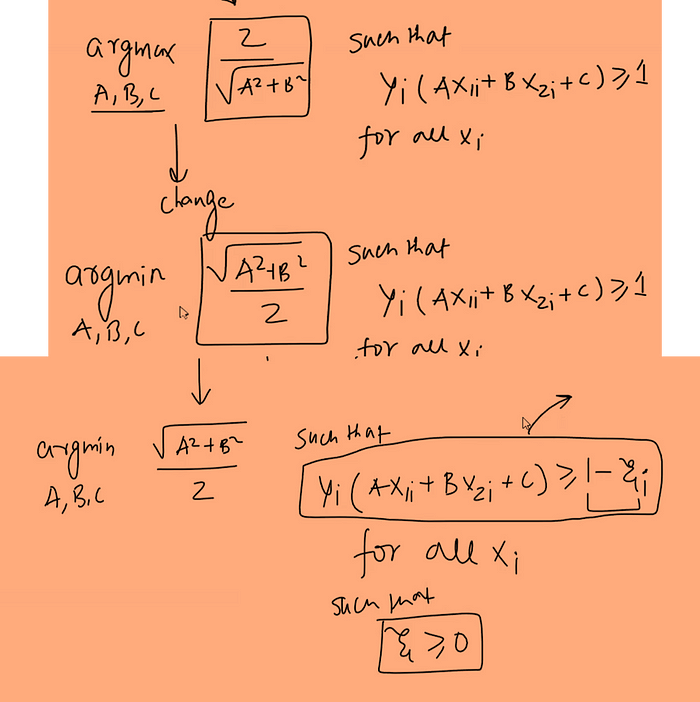 argmax 2/√A²+B² such that
A, B, C yi (AX1i + BX2i + C) ≥ 1
for all xi
change
argmin √A²+B²/2 such that
A, B, C yi (AX1i + BX2i + C) ≥ 1
for all xi
argmin √A²+B²/2 such that
A, B, C yi (AX1i + BX2i + C) ≥ 1 - ξi
for all xi
such that
ξi ≥ 0